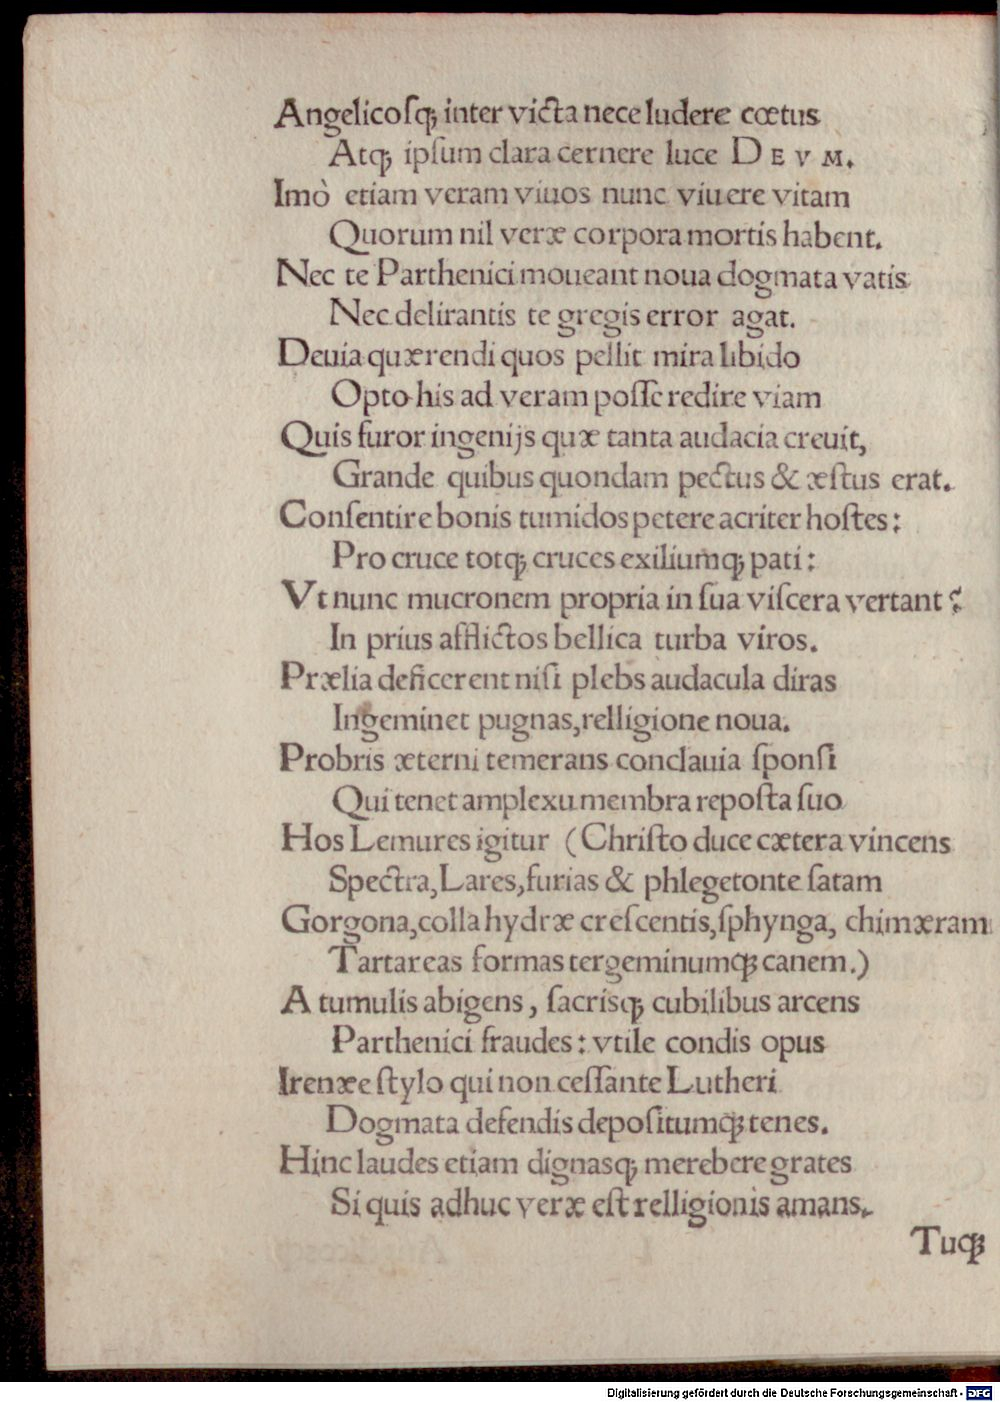 Angelicoſq́; inter victa nece ludere cœtus
Atq́; ipſum clara cernere luce DEVM.
Imò etiam veram viuos nunc viuere vitam
Quorum nil veræ corpora mortis habent.
Nec te Parthenici moueant noua dogmata vatis
Nec delirantis te gregis error agat.
Deuia quærendi quos pellit mira libido
Opto his ad veram poſſe redire viam
Quis furor ingenijs quæ tanta audacia creuit,
Grande quibus quondam pectus & æſtus erat.
Conſentire bonis tumidos petere acriter hoſtes:
Pro cruce totq́; cruces exiliumq́; pati:
Vt nunc mucronem propria in ſua viſcera vertant?
In prius afflictos bellica turba viros.
Prælia deficerent niſi plebs audacula diras
Ingeminet pugnas, relligione noua.
Probris æterni temerans conclauia ſponſi
Qui tenet amplexu membra repoſta ſuo
Hos Lemures igitur (Chriſto duce cætera vincens
Spectra, Lares, furias & phlegetonte ſatam
Gorgona, colla hydræ creſcentis, ſphynga, chimæram
Tartareas formas tergeminumq́; canem.)
A tumulis abigens, ſacrisq́; cubilibus arcens
Parthenici fraudes: vtile condis opus
Irenæe ſtylo qui non ceſſante Lutheri
Dogmata defendis depoſitumq́; tenes.
Hinc laudes etiam dignasq́; merebere grates
Si quis adhuc veræ eſt relligionis amans.
Tuq́;
Digitalisierung gefördert durch die Deutsche Forschungsgemeinschaft - DFG